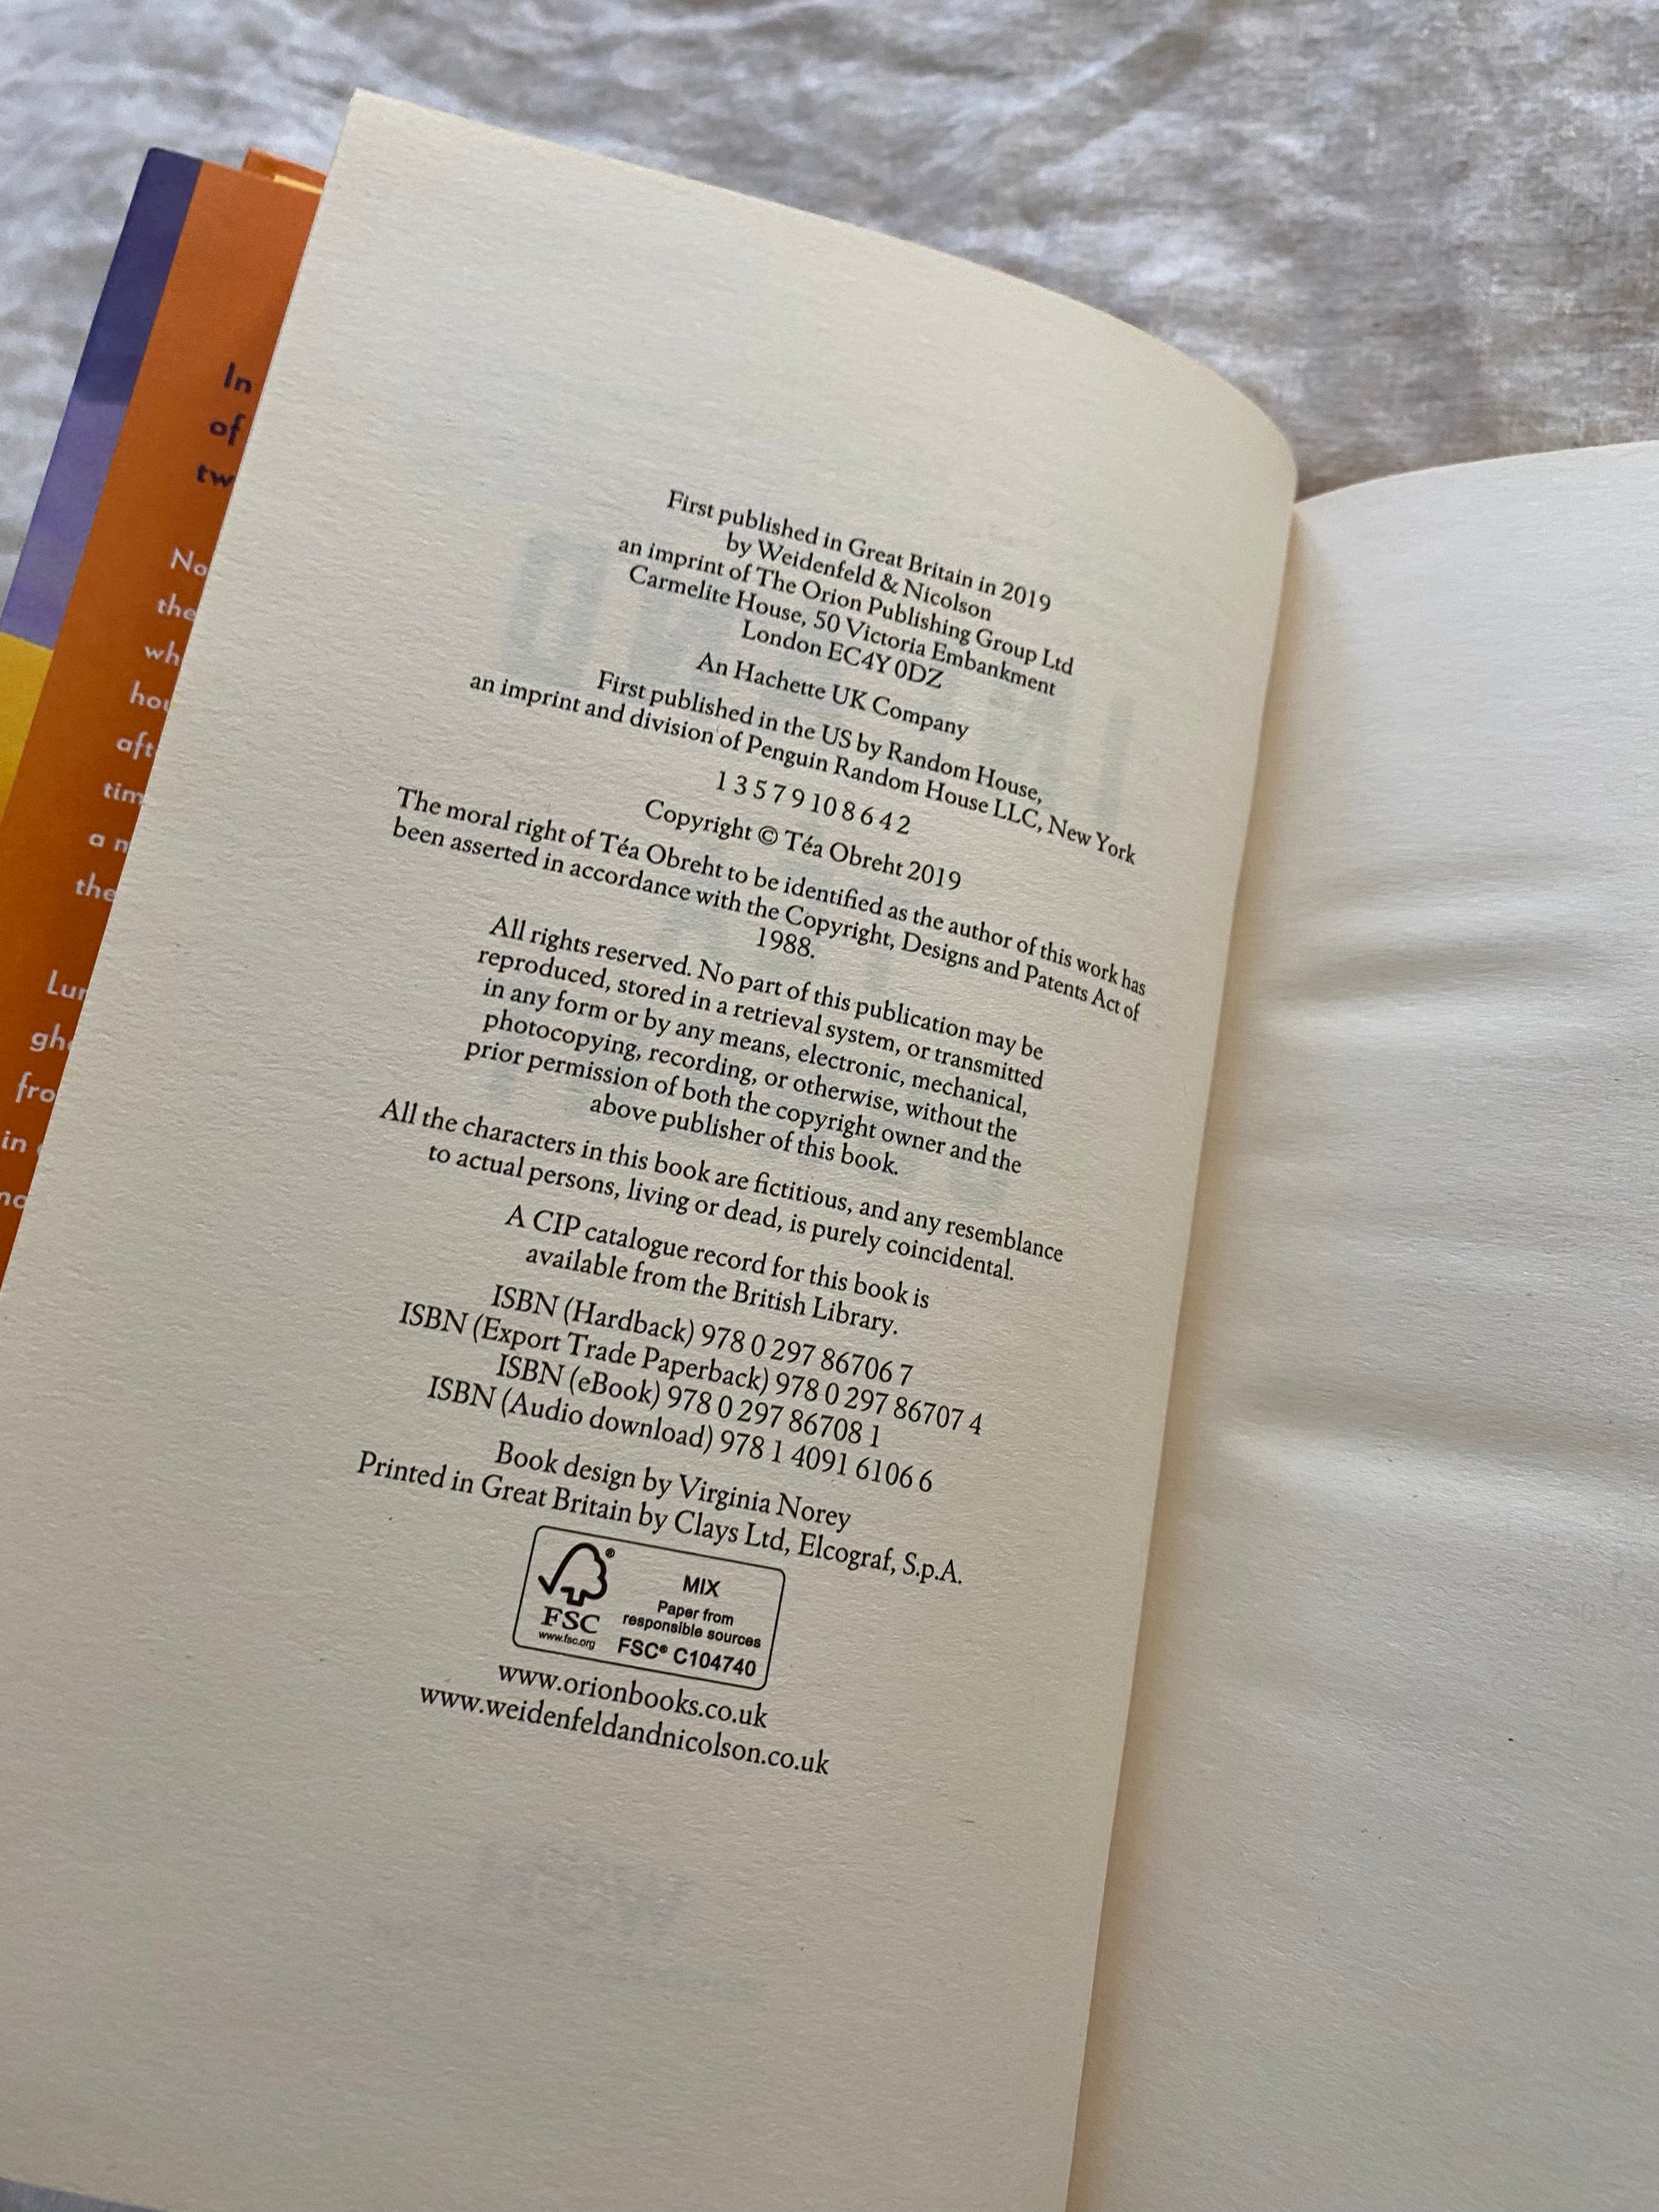 In
of
tw
No
the
wh
hou
aft
tim
a n
the
Lun
gho
fro
in
First published in Great Britain in 2019
by Weidenfeld & Nicolson
an imprint of The Orion Publishing Group Ltd
Carmelite House, 50 Victoria Embankment
London EC4Y 0DZ
An Hachette UK Company
First published in the US by Random House,
an imprint and division of Penguin Random House LLC, New York
1 3 5 7 9 10 8 6 4 2
Copyright © Téa Obreht 2019
The moral right of Téa Obreht to be identified as the author of this work has
been asserted in accordance with the Copyright, Designs and Patents Act of
1988.
All rights reserved. No part of this publication may be
reproduced, stored in a retrieval system, or transmitted
in any form or by any means, electronic, mechanical,
photocopying, recording, or otherwise, without the
prior permission of both the copyright owner and the
above publisher of this book.
All the characters in this book are fictitious, and any resemblance
to actual persons, living or dead, is purely coincidental.
A CIP catalogue record for this book is
available from the British Library.
ISBN (Hardback) 978 0 297 86706 7
ISBN (Export Trade Paperback) 978 0 297 86707 4
ISBN (eBook) 978 0 297 86708 1
ISBN (Audio download) 978 1 4091 6106 6
Book design by Virginia Norey
Printed in Great Britain by Clays Ltd, Elcograf, S.p.A.
MIX
Paper from
responsible sources
FSC® C104740
FSC
www.fsc.org
www.orionbooks.co.uk
www.weidenfeldandnicolson.co.uk